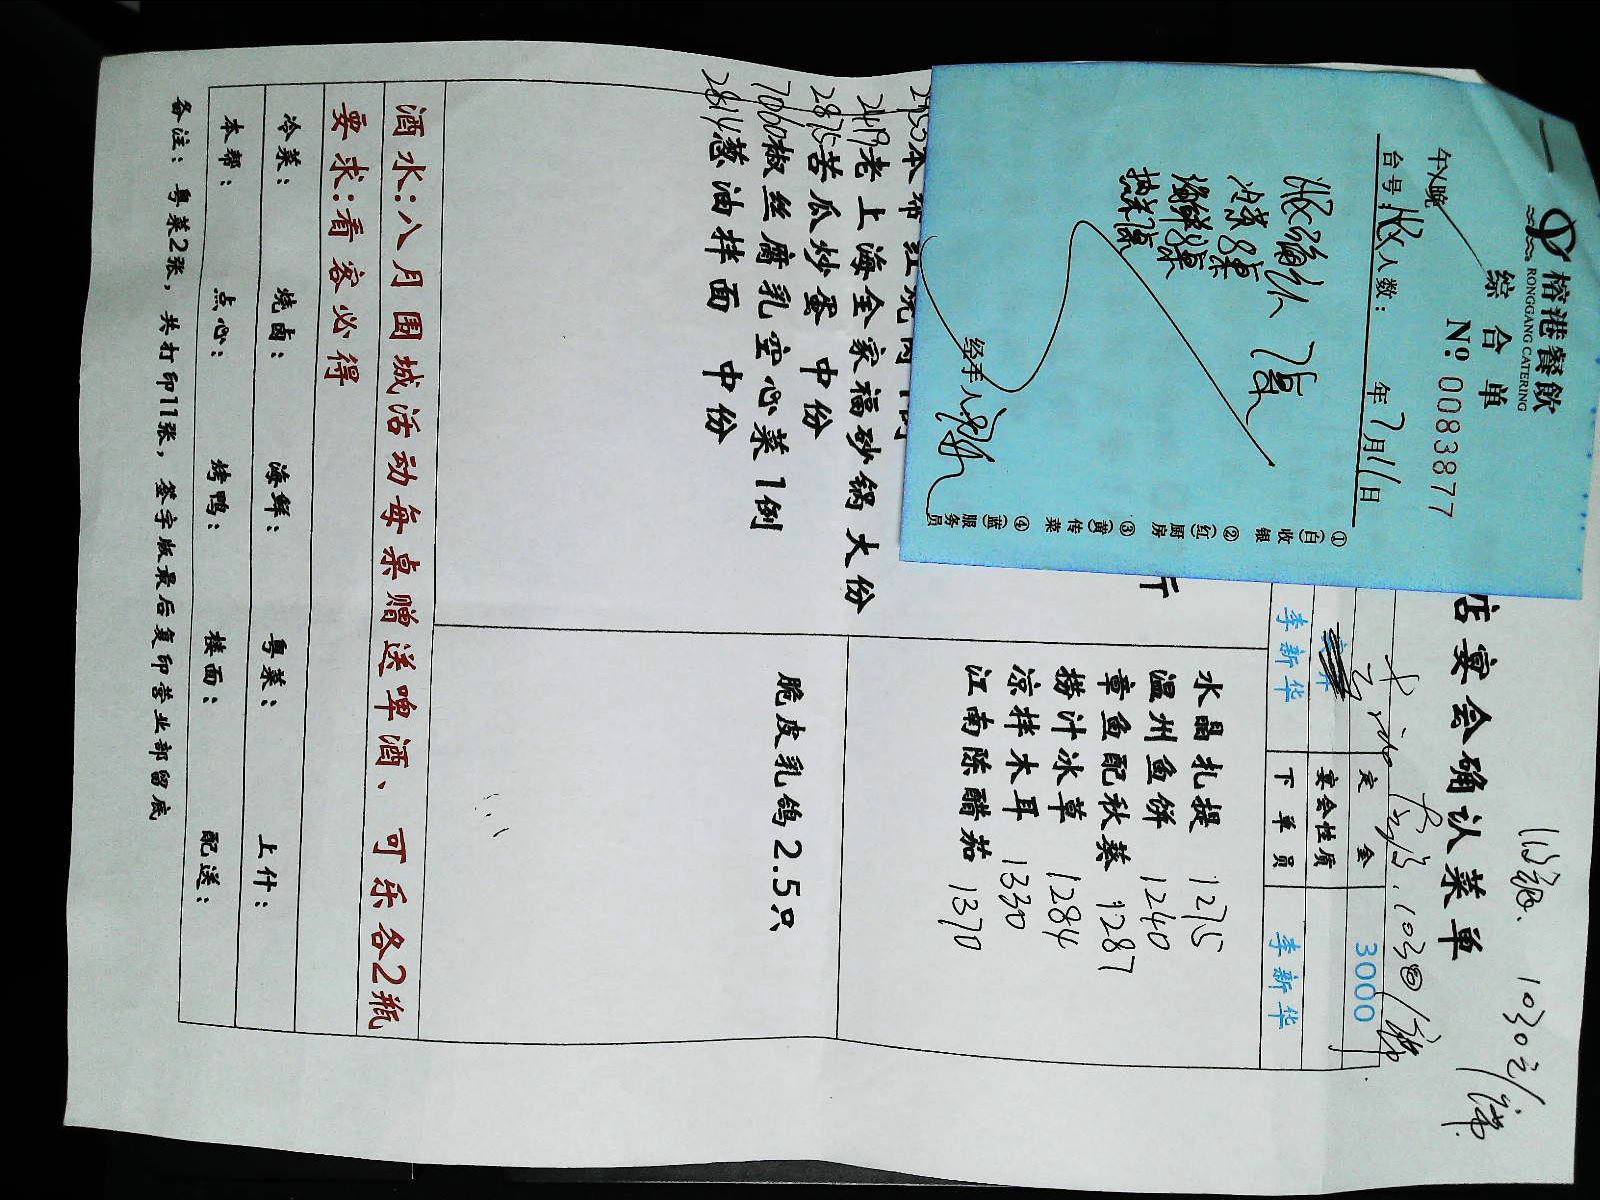 榕港餐飲
RONGGANG CATERING
综合单
午晚
№ 0083877
台号: 人数: 年7月11日
7桌
经手人
①(白)收银 ②(红)厨房 ③(黄)传菜 ④(蓝)服务员
1030元/
店宴会确认菜单
定金 3000
宴会性质
李新华 下单员 李新华
斤
水晶扎提 1275
温州鱼饼 1240
章鱼配秋葵 1287
捞汁冰草 1284
凉拌木耳 1330
江南陈醋茄 1370
本帮红烧肉
2419老上海全家福砂锅 大份
2875苦瓜炒蛋 中份
椒丝腐乳空心菜 1例
2814葱油拌面 中份
脆皮乳鸽 2.5只
酒水:八月围城活动每桌赠送啤酒、可乐各2瓶
要求:看客必得
冷菜: 烧卤: 海鲜: 粤菜: 上什:
本帮: 点心: 烤鸭: 楼面: 配送:
备注: 粤菜2张, 共打印11张, 签字版最后复印营业部留底